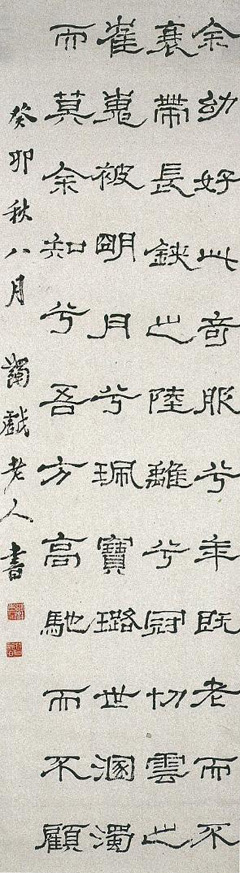 余幼好此奇服兮年既老而不
衰帶長鋏之陸離兮冠切雲之
崔嵬被明月兮珮寶璐世溷濁
而莫余知兮吾方高馳而不顧
癸卯秋八月 蠲戲老人書